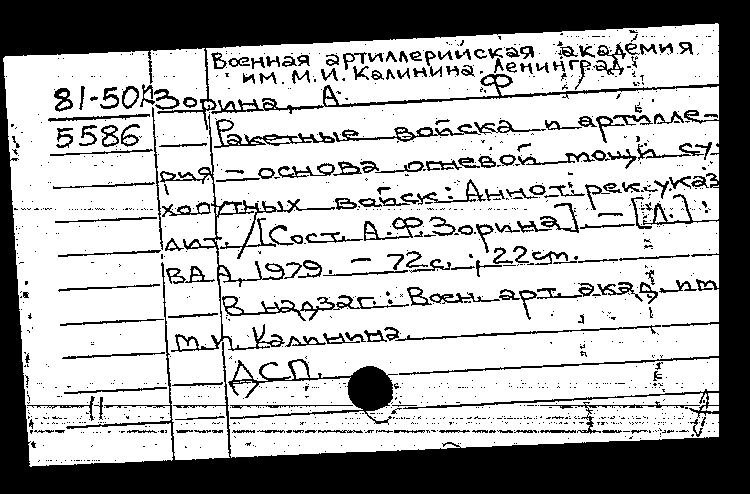 Военная артиллерийская академия
им. М.И. Калинина. Ленинград.
81-50К Зорина, А. Ф
5586 Ракетные войска и артилле-
рия – основа огневой мощи су-
хопутных войск: Аннот. рек. указ
лит. / [Сост. А.Ф. Зорина]. – [Л.] :
ВАА, 1979. – 72с. ; 22см.
В надзаг.: Воен. арт. акад. им
М.И. Калинина.
ДСП.
11